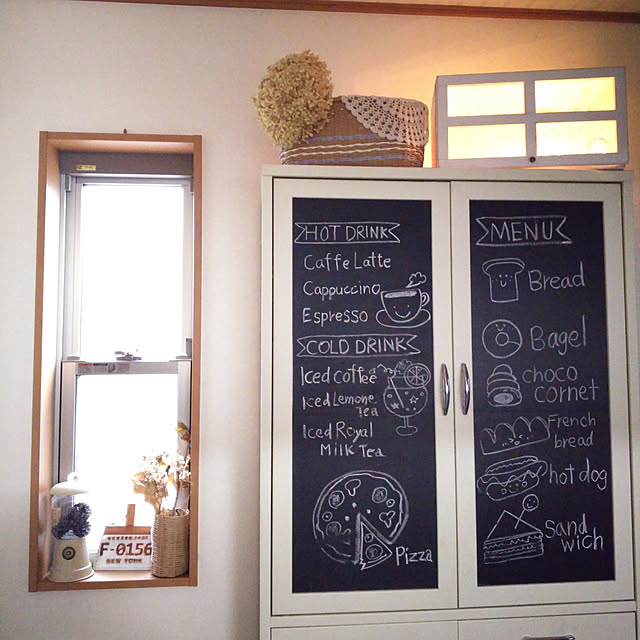 HOT DRINK
Caffe Latte
Cappuccino
Espresso
COLD DRINK
Iced coffee
Iced Lemone
Tea
Iced Royal
Milk Tea
Pizza
MENU
Bread
Bagel
choco
cornet
French
bread
hot dog
Sand
wich
F-0156
NEW YORK